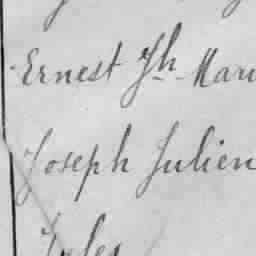 Ernest Jh Mari
Joseph Julien
Jules